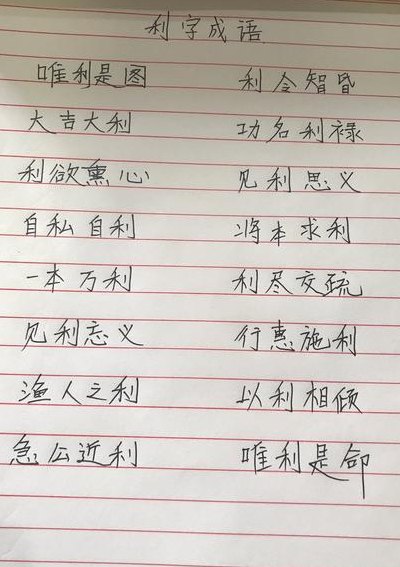 利字成语
唯利是图 利令智昏
大吉大利 功名利禄
利欲熏心 见利思义
自私自利 将本求利
一本万利 利尽交疏
见利忘义 行惠施利
渔人之利 以利相倾
急公近利 唯利是命